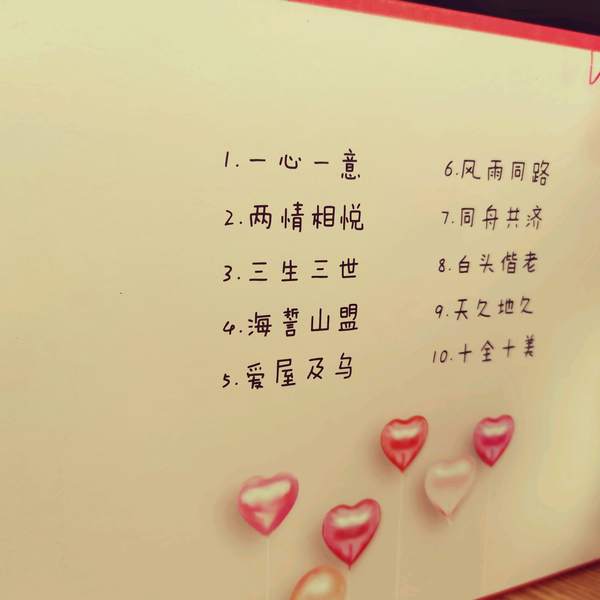 1.一心一意
2.两情相悦
3.三生三世
4.海誓山盟
5.爱屋及乌
6.风雨同路
7.同舟共济
8.白头偕老
9.天久地久
10.十全十美